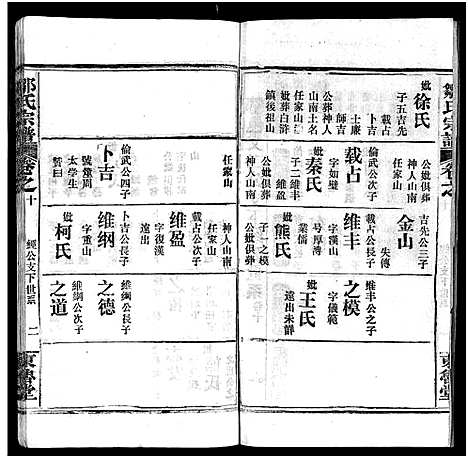 鄒氏宗譜
卷之十
東魯堂
妣徐氏
子五吉先
載占
卜吉
士廉
師吉
山南土名
公葬神人
妣葬白浒
鎮後祖山
公妣俱葬
神人山南
任家山
載占
字如璧
妣秦氏
子二維丰
維盈
公妣俱葬
神人山南
任家山
卜吉
偷武公四子
號覺周
太學生
贊曰
吉先公三子
金山
失傳
載占公長子
維丰
號厚濤
業儒
妣熊氏
子一之模
公妣俱葬
神人山南
任家山
載占公次子
維盈
字復漢
遠出
卜吉公長子
維綱
字重山
妣柯氏
維丰公之子
之模
字儀範
妣王氏
遠出未詳
維綱公長子
之德
維綱公次子
之道
鄒氏宗譜
卷之十
經公支下世系
二
東魯堂